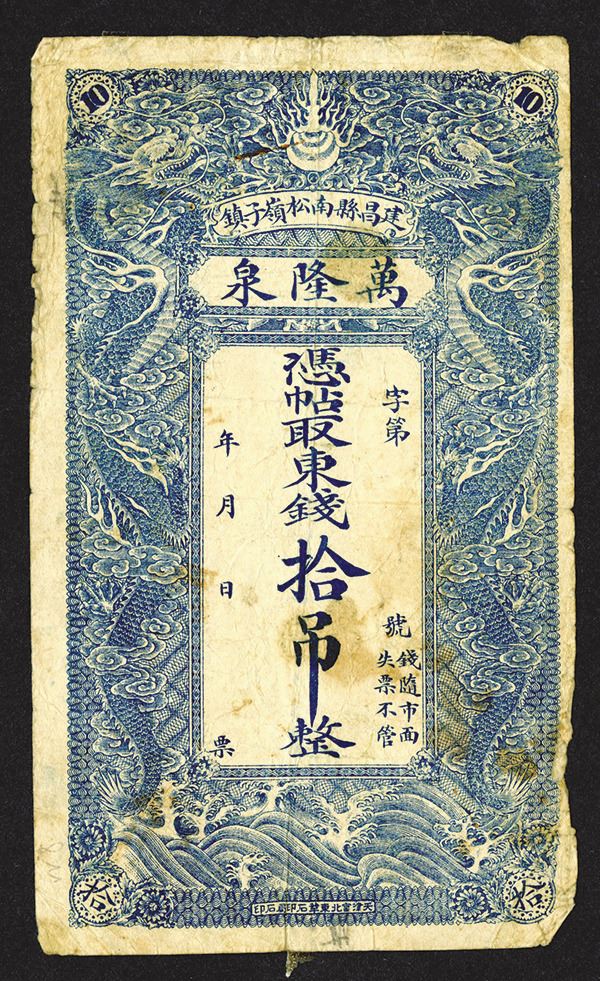 10
10
建昌縣南松嶺子鎮
萬隆泉
字第
號
錢隨市面
失票不管
憑帖取東錢拾吊整
年月日
票
拾
拾
天津宮北東華石印局石印